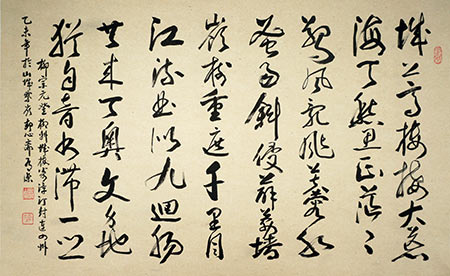 城上高樓接大荒
海天愁思正茫〻
驚風亂飐芙蓉水
密雨斜侵薜荔墙
嶺樹重遮千里目
江流曲似九迴腸
共来百粤文身地
猶自音書滞一鄉
柳宗元登柳州城樓寄漳汀封連四州
乙未年於山城